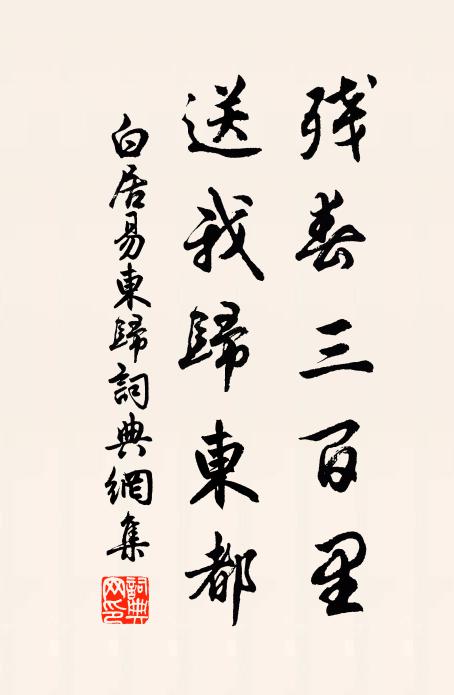 残春三百里
送我歸東都
白居易東歸詞典網集
詞典网印